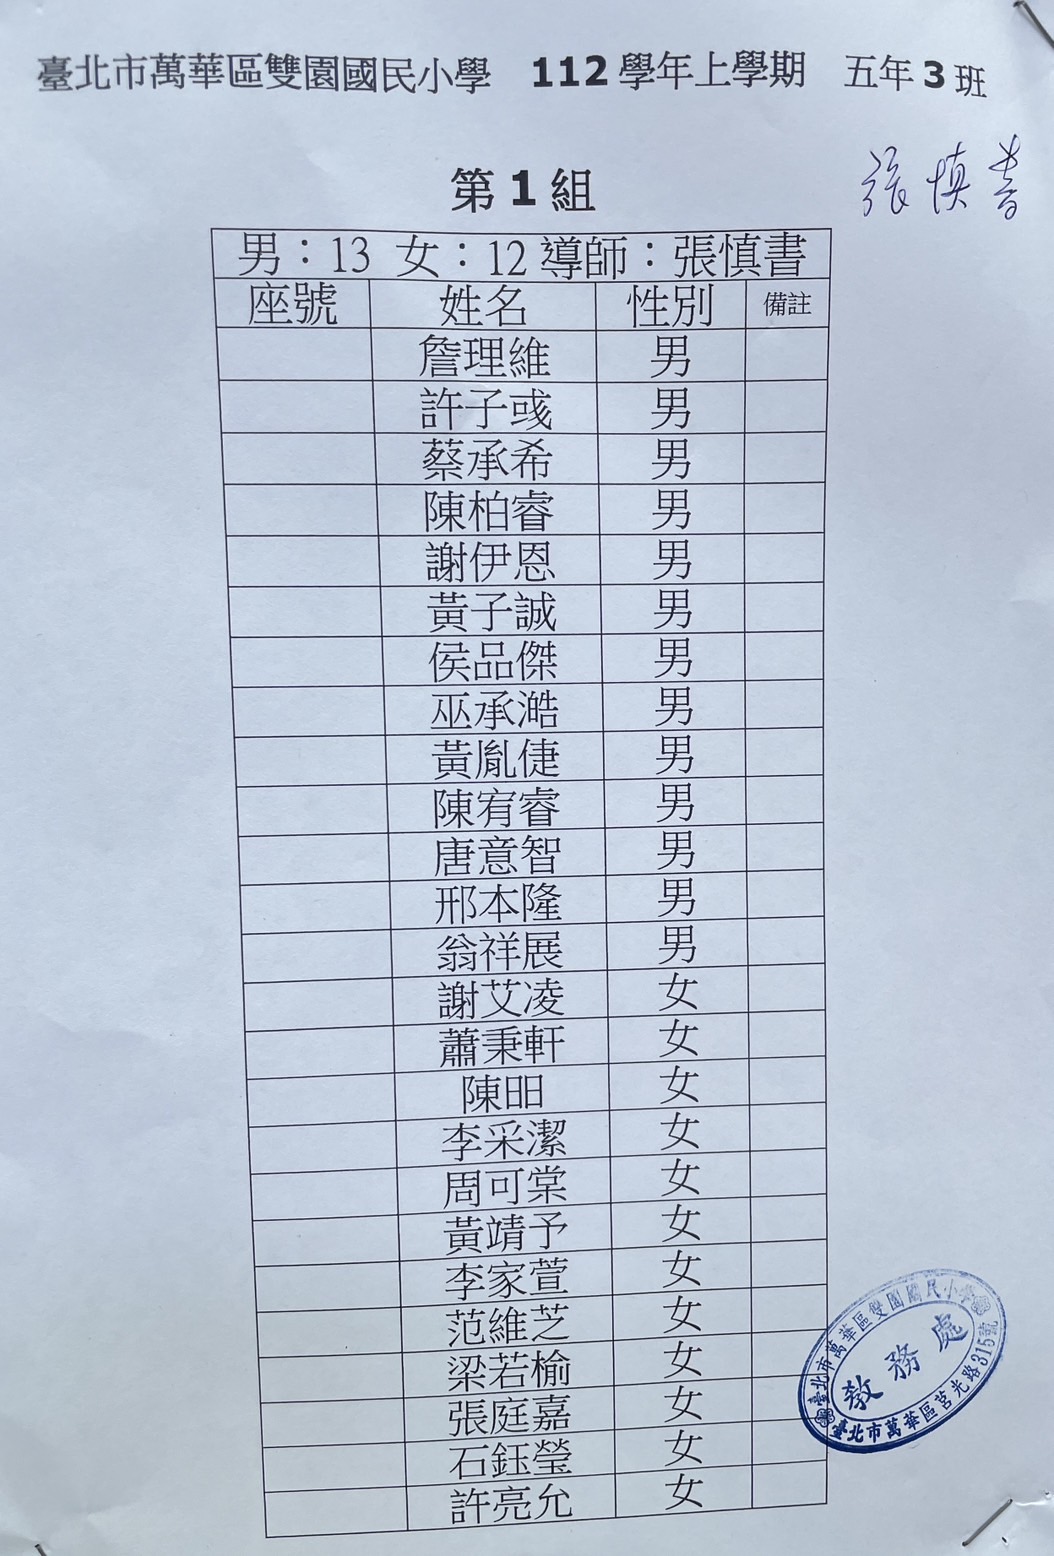 臺北市萬華區雙園國民小學 112 學年上學期 五年 3 班
張慎書
第 1 組
男：13 女：12 導師：張慎書
座號 姓名 性別 備註
詹理維 男
許子彧 男
蔡承希 男
陳柏睿 男
謝伊恩 男
黃子誠 男
侯品傑 男
巫承澔 男
黃胤倢 男
陳宥睿 男
唐意智 男
邢本隆 男
翁祥展 男
謝艾凌 女
蕭秉軒 女
陳昍 女
李采潔 女
周可棠 女
黃靖予 女
李家萱 女
范維芝 女
梁若榆 女
張庭嘉 女
石鈺瑩 女
許亮允 女
臺北市萬華區雙園國民小學
教務處
臺北市萬華區莒光路315號